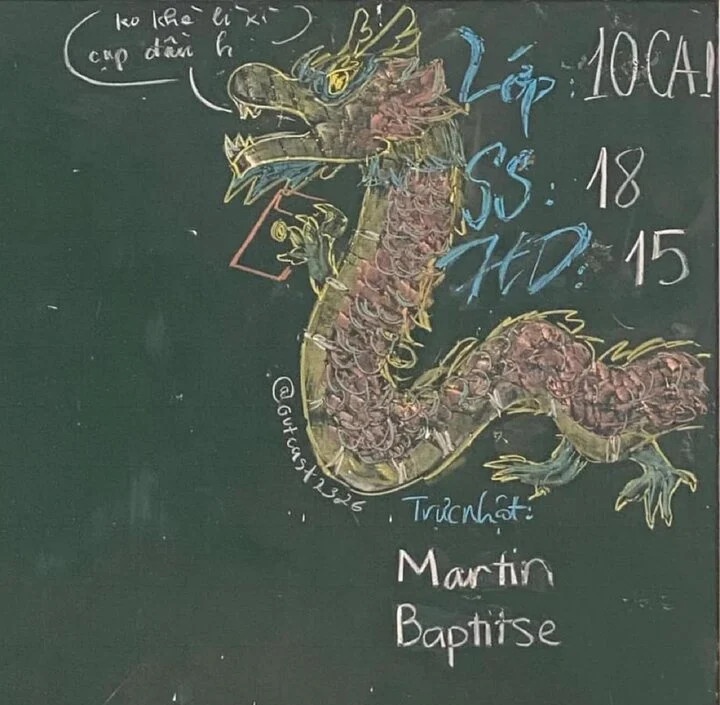 ko khè lì xì
cạp đầu h
Lớp: 10CA1
SS: 18
HD: 15
@outcast2326
Trực nhật:
Martin
Baptitse